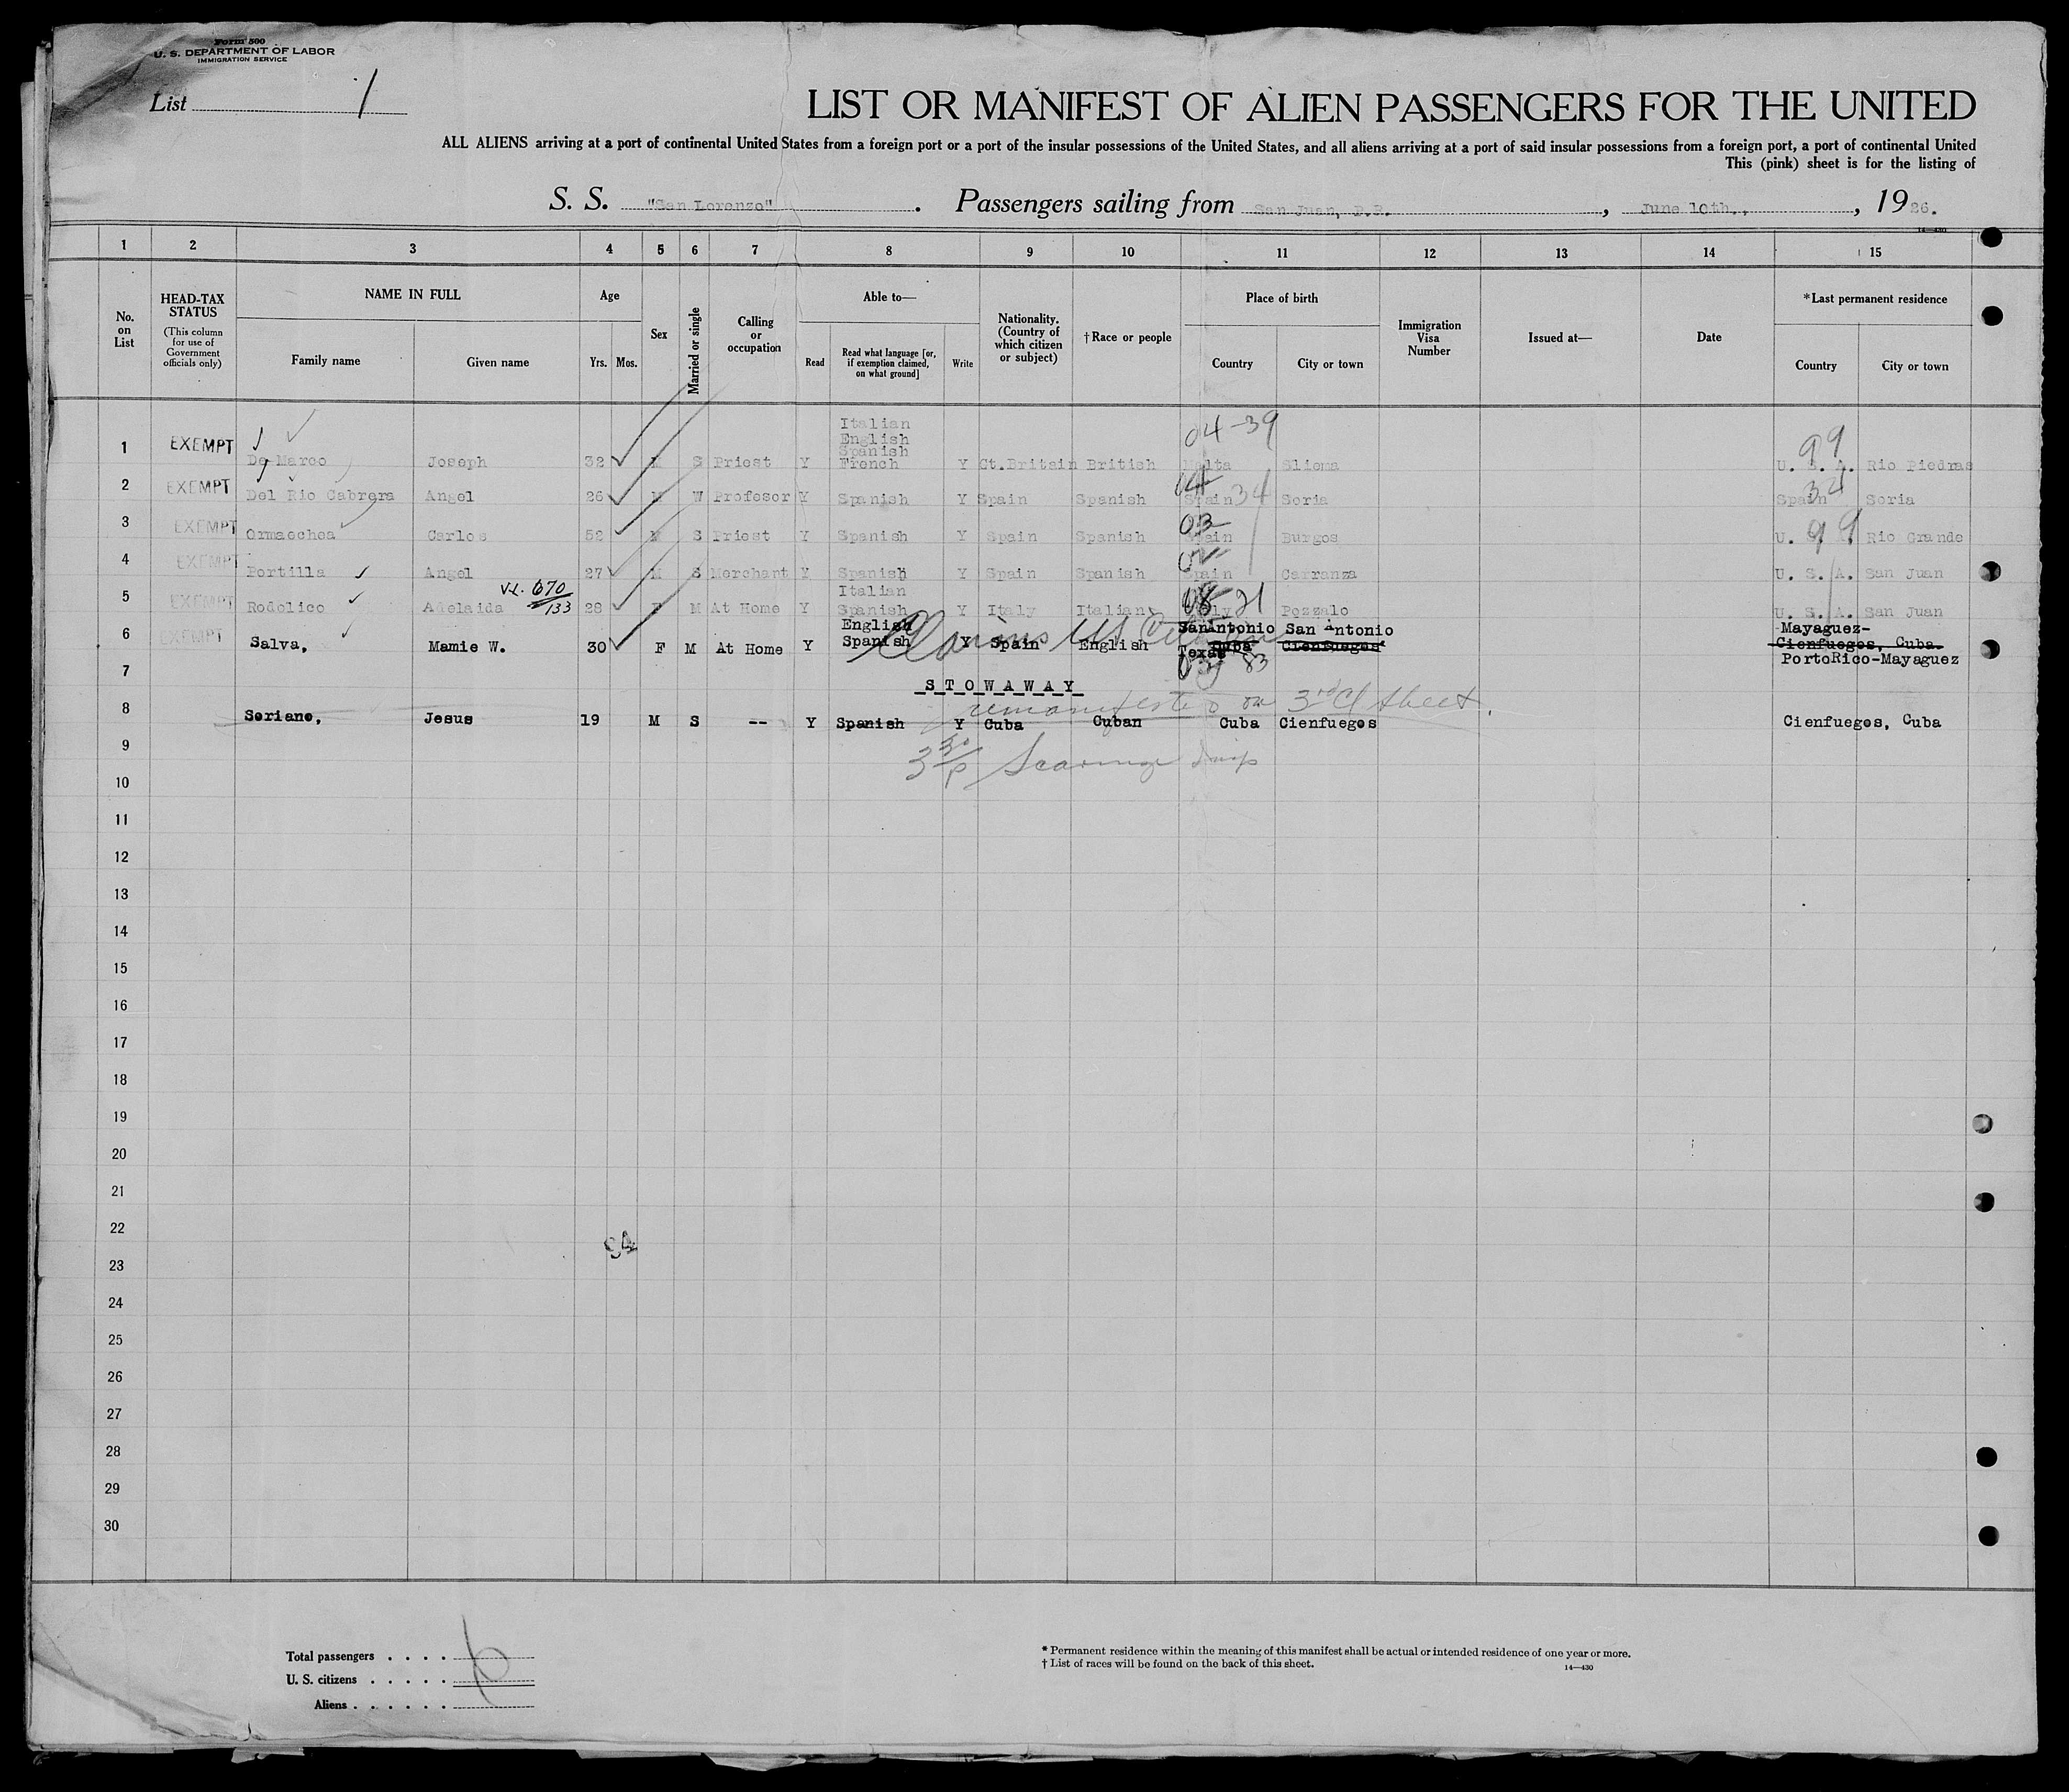 Form 500
U. S. DEPARTMENT OF LABOR
IMMIGRATION SERVICE
List 1
LIST OR MANIFEST OF ALIEN PASSENGERS FOR THE UNITED
ALL ALIENS arriving at a port of continental United States from a foreign port or a port of the insular possessions of the United States, and all aliens arriving at a port of said insular possessions from a foreign port, a port of continental United
This (pink) sheet is for the listing of
S. S. "San Lorenzo". Passengers sailing from San Juan, P.R., June 10th., 1926.
14—430
1 2 3 4 5 6 7 8 9 10 11 12 13 14 15
No. on List
HEAD-TAX STATUS
(This column for use of Government officials only)
NAME IN FULL
Family name Given name
Age
Yrs. Mos.
Sex
Married or single
Calling or occupation
Able to—
Read
Read what language [or, if exemption claimed, on what ground]
Write
Nationality. (Country of which citizen or subject)
†Race or people
Place of birth
Country City or town
Immigration Visa Number
Issued at—
Date
*Last permanent residence
Country City or town
04-39
99
1 EXEMPT De Marco Joseph 32 M S Priest Y Italian English Spanish French Y Gt.Britain British Malta Sliema U. S. A. Rio Piedras
2 EXEMPT Del Rio Cabrera Angel 26 M W Profesor Y Spanish Y Spain Spanish Spain 34 Soria Spain 34 Soria
3 EXEMPT Ormaechea Carlos 52 M S Priest Y Spanish Y Spain Spanish 03 Spain Burgos U. 99 Rio Grande
4 EXEMPT Portilla Angel 27 M S Merchant Y Spanish Y Spain Spanish Spain Carranza U. S. A. San Juan
5 EXEMPT Rodolico Adelaida V.L. 670/133 28 F M At Home Y Italian Spanish Y Italy Italian 08 21 Pozzalo U. S. A. San Juan
6 EXEMPT Salva, Mamie W. 30 F M At Home Y English Spanish Y Spain English San Antonio Texas Cuba San Antonio Cienfuegos Mayaguez- Cienfuegos, Cuba. PortoRico-Mayaguez
Claims US
83
7
S T O W A W A Y
remanifested on 3rd Cl sheet.
8 Soriano, Jesus 19 M S -- Y Spanish Y Cuba Cuban Cuba Cienfuegos Cienfuegos, Cuba
9
10
11
12
13
14
15
16
17
18
19
20
21
22
23
24
25
26
27
28
29
30
Total passengers . . . .
U. S. citizens . . . . .
Aliens . . . . . .
6
* Permanent residence within the meaning of this manifest shall be actual or intended residence of one year or more.
† List of races will be found on the back of this sheet.
14—430